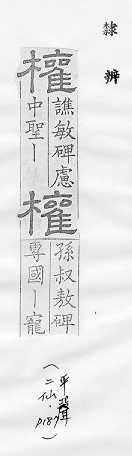 隸辨
權
譙敏碑慮
中聖丨
權
孫叔敖碑
專國丨寵
(平聲
二仙.P189)